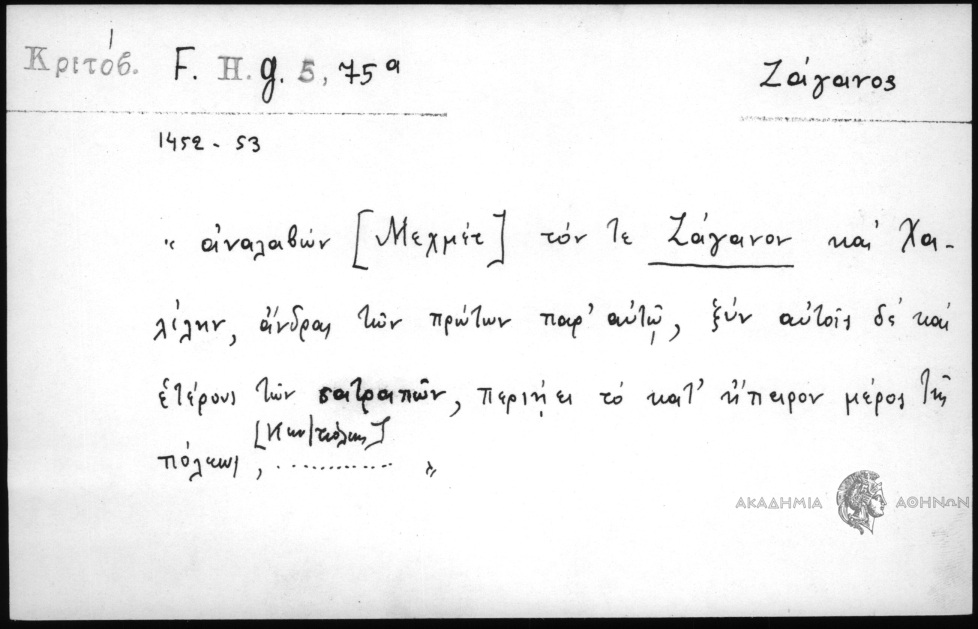 Κριτόβ. F. H. g. 5, 75α
Ζάγανος
1452 - 53
" ἀναλαβών [Μεχμέτ] τόν τε Ζάγανον καί Χα-
λίλην, ἄνδρας τῶν πρώτων παρ' αὐτῷ, ξύν αὐτοῖς δέ καί
ἑτέρους τῶν σατραπῶν, περιῄει τό κατ' ἤπειρον μέρος τῆς
[Κων/πόλεως]
πόλεως, .............. "
ΑΚΑΔΗΜΙΑ ΑΘΗΝΩΝ